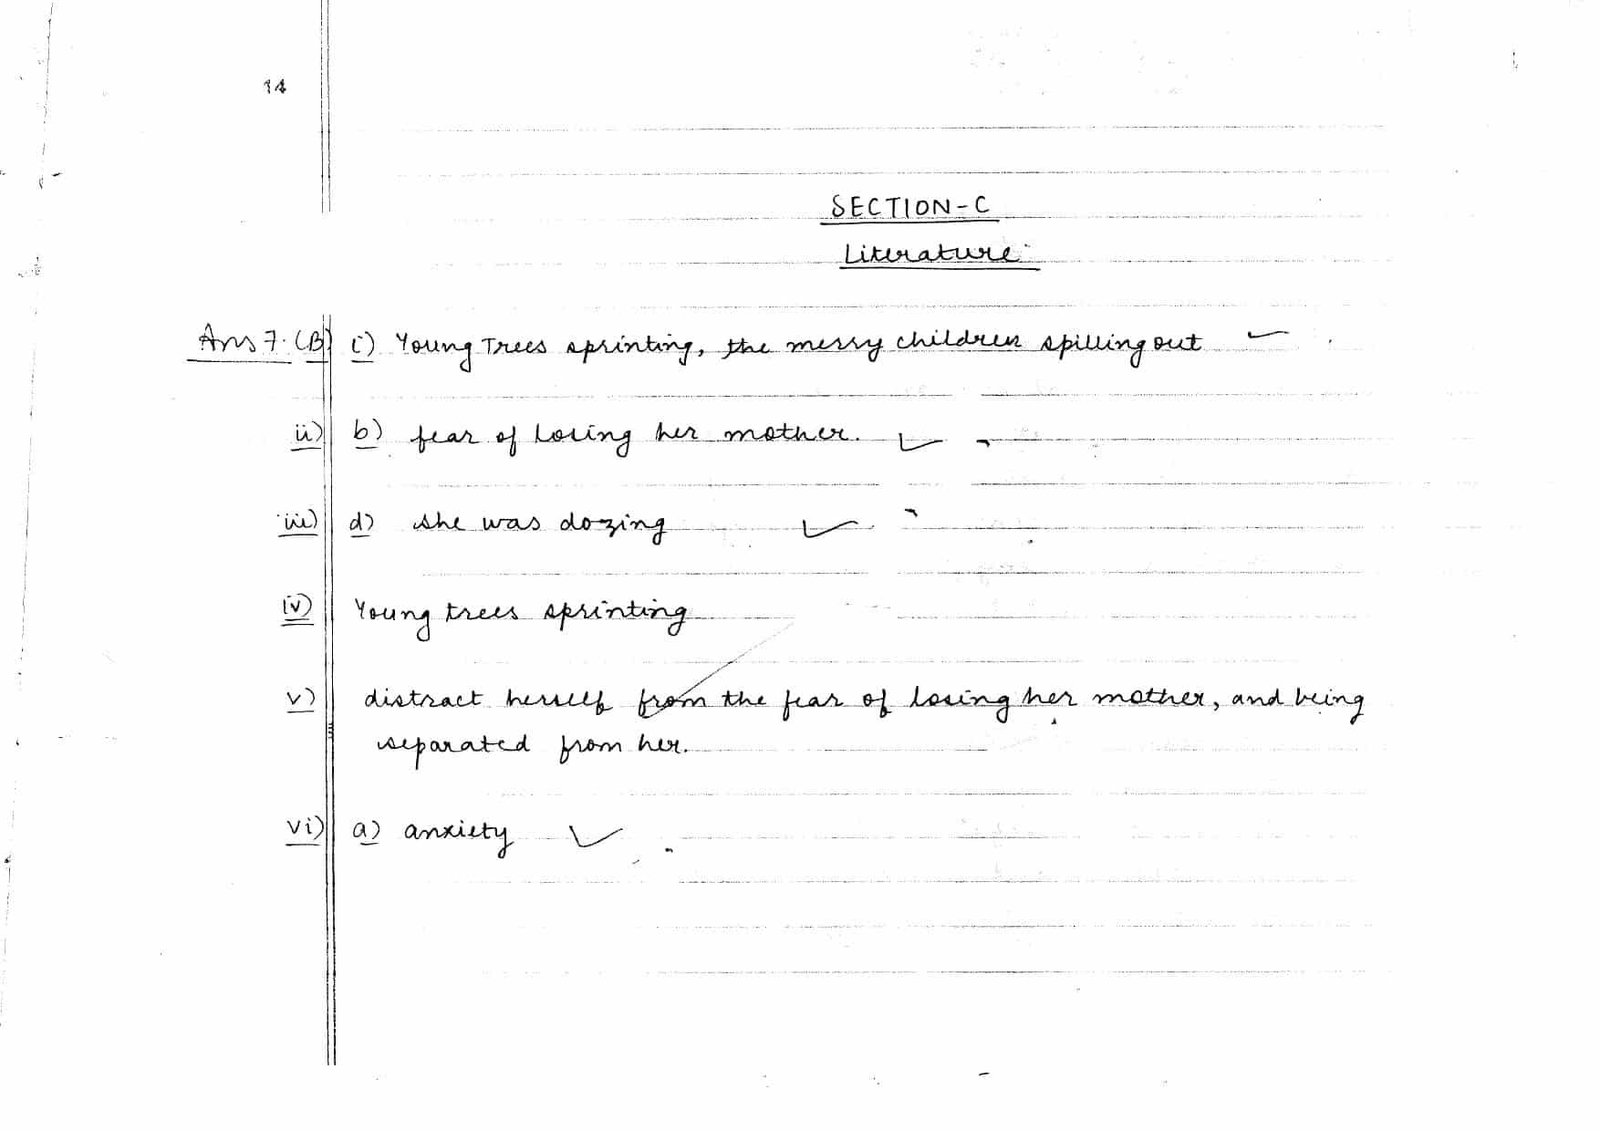 14
SECTION-C
Literature
Ans 7. (B) i) Young Trees sprinting, the merry children spilling out
ii) b) fear of losing her mother.
iii) d) she was dozing
iv) Young trees sprinting
v) distract herself from the fear of losing her mother, and being
separated from her.
vi) a) anxiety